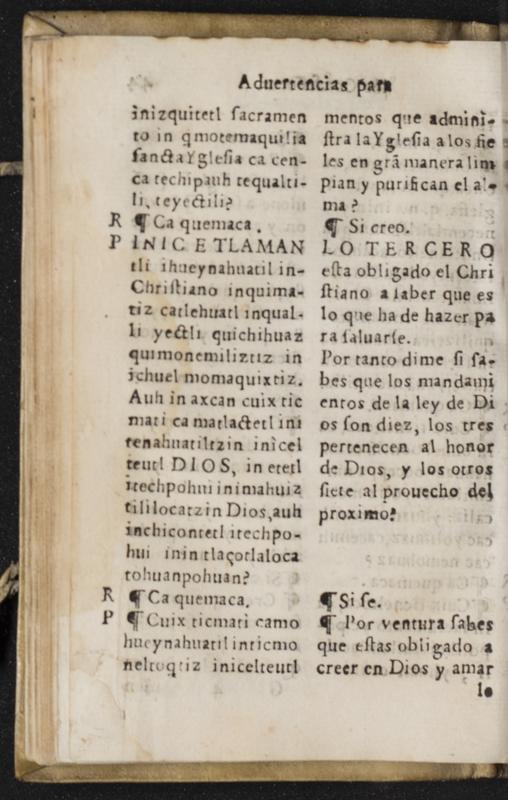 Aduertencias para
inizquitetl sacramen
to in q̃motemaquilia
sancta Yglesia ca cen-
ca techipauh tequalti-
li, teyectili?
R ¶ Ca quemaca.
P INIC ETLAMAN
tli ihueynahuatil in-
Christiano inquima-
tiz catlehuatl inqual-
li yectli quichihuaz
quimonemiliztiz in
ichuel momaquixtiz.
Auh in axcan cuix tic
mati ca matlactetl ini
tenahuatiltzin inicel
teutl DIOS, in etetl
itechpohui inimahuiz
tililocatzin Dios, auh
inchicontetl itechpo-
hui inin tlaçotlaloca
tohuanpohuan?
R ¶ Ca quemaca.
P ¶ Cuix ticmati camo
hueynahuatil inticmo
neltoq̃tiz inicelteutl
mentos que admini-
stra la Yglesia a los fie
les en grã manera lim
pian y purifican el al-
ma?
¶ Si creo.
LO TERCERO
esta obligado el Chri
stiano a saber que es
lo que ha de hazer pa
ra saluarse.
Por tanto dime si sa-
bes que los mandami
entos de la ley de Di
os son diez, los tres
pertenecen al honor
de Dios, y los otros
siete al prouecho del
proximo?
¶ Si se.
¶ Por ventura sabes
que estas obligado a
creer en Dios y amar
lo